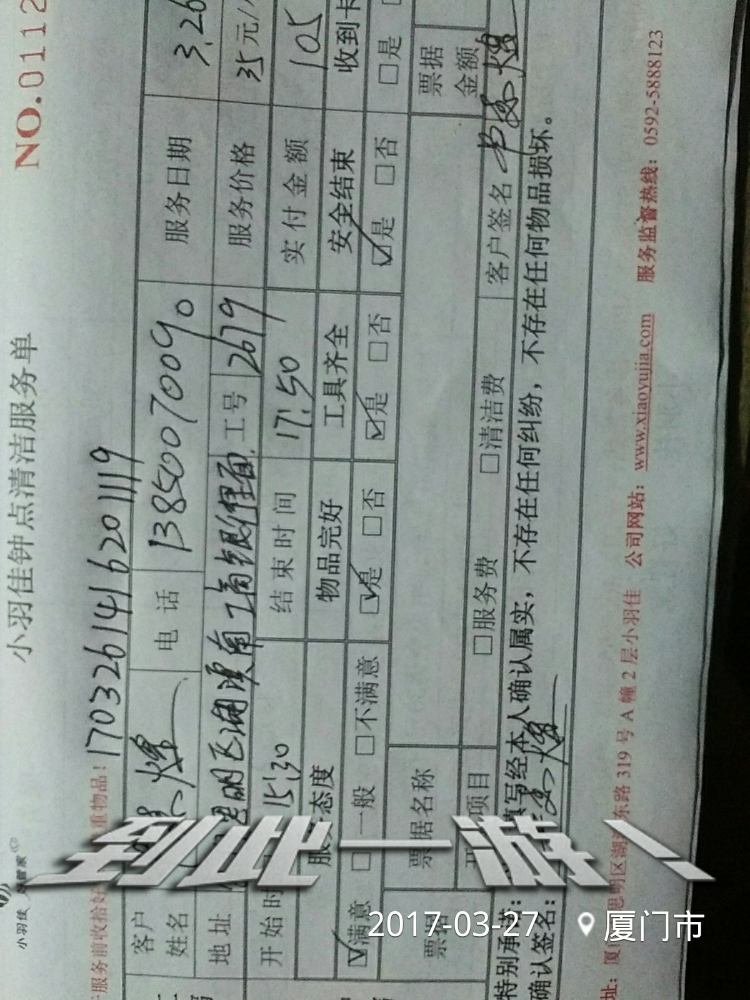 NO.0112
小羽佳钟点清洁服务单
小羽佳
重物品! 1703261416201119
客户姓名 电话 13850070090 服务日期 3.26
地址 工号 2679 服务价格 35元/
开始时 15:30 结束时间 17:50 实付金额 105
服 态度 物品完好 工具齐全 安全结束 收到卡
☑满意 □一般 □不满意 ☑是 □否 ☑是 □否 ☑是 □否 □是
票据 票据名称 票据金额
项目 □服务费 □清洁费 客户签名
特别承诺: 填写经本人确认属实,不存在任何纠纷,不存在任何物品损坏。
确认签名:
址: 厦 思明区湖 东路319号A幢2层小羽佳 公司网站: www.xiaoyujia.com 服务监督热线: 0592-5888123
到此一游
2017-03-27 厦门市